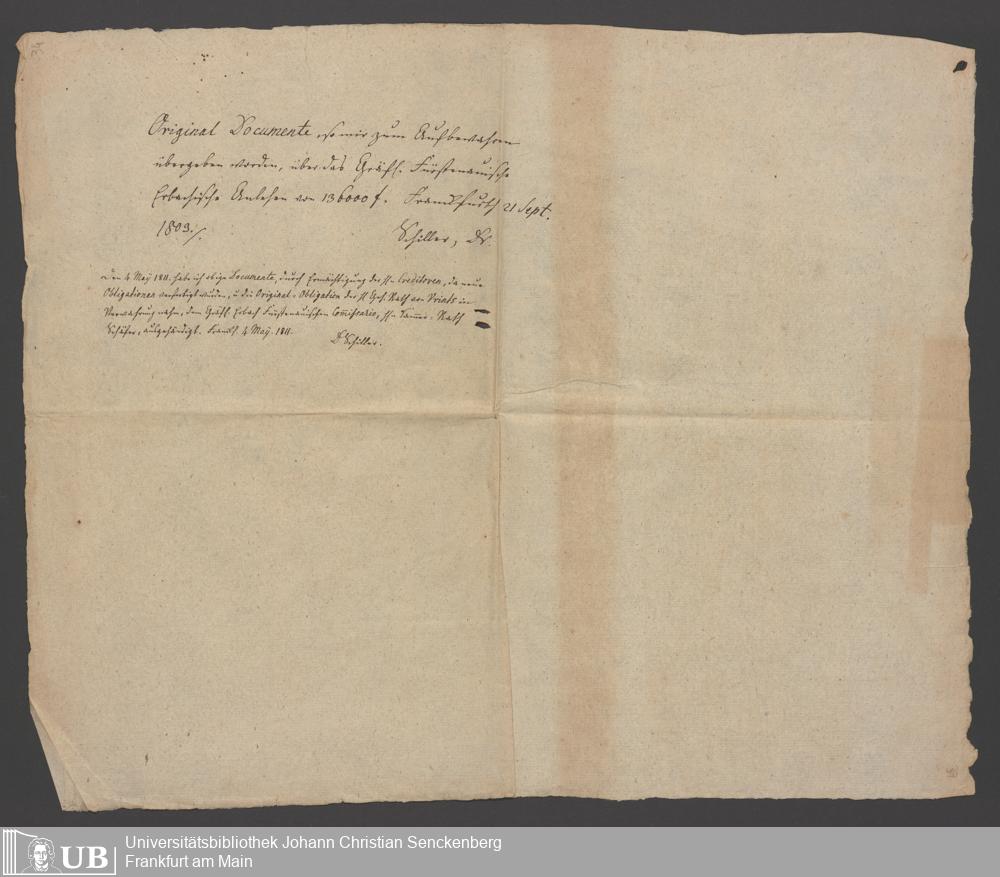 Original Documente, so mir zum Aufbewahren
übergeben worden, über das Gräfl. Fürstenauische
Erbachische Anlehen von 136000 f. Frankfurth 21 Sept.
1803./.
Schiller, Dr.
Den 4 May 1811. habe ich obige Documente, durch Ermächtigung der H. Creditoren, da neue
Obligationen ausgefertigt wurden, u die Original-Obligation der H Geh. Rath von Vrints in
Verwahrung nahm, dem Gräfl. Erbach Fürstenauischen Commissario, Hn Cammer-Rath
Schäfer, ausgehändigt. Frankf. 4 May. 1811.
Dr Schiller.
UB
Universitätsbibliothek Johann Christian Senckenberg
Frankfurt am Main